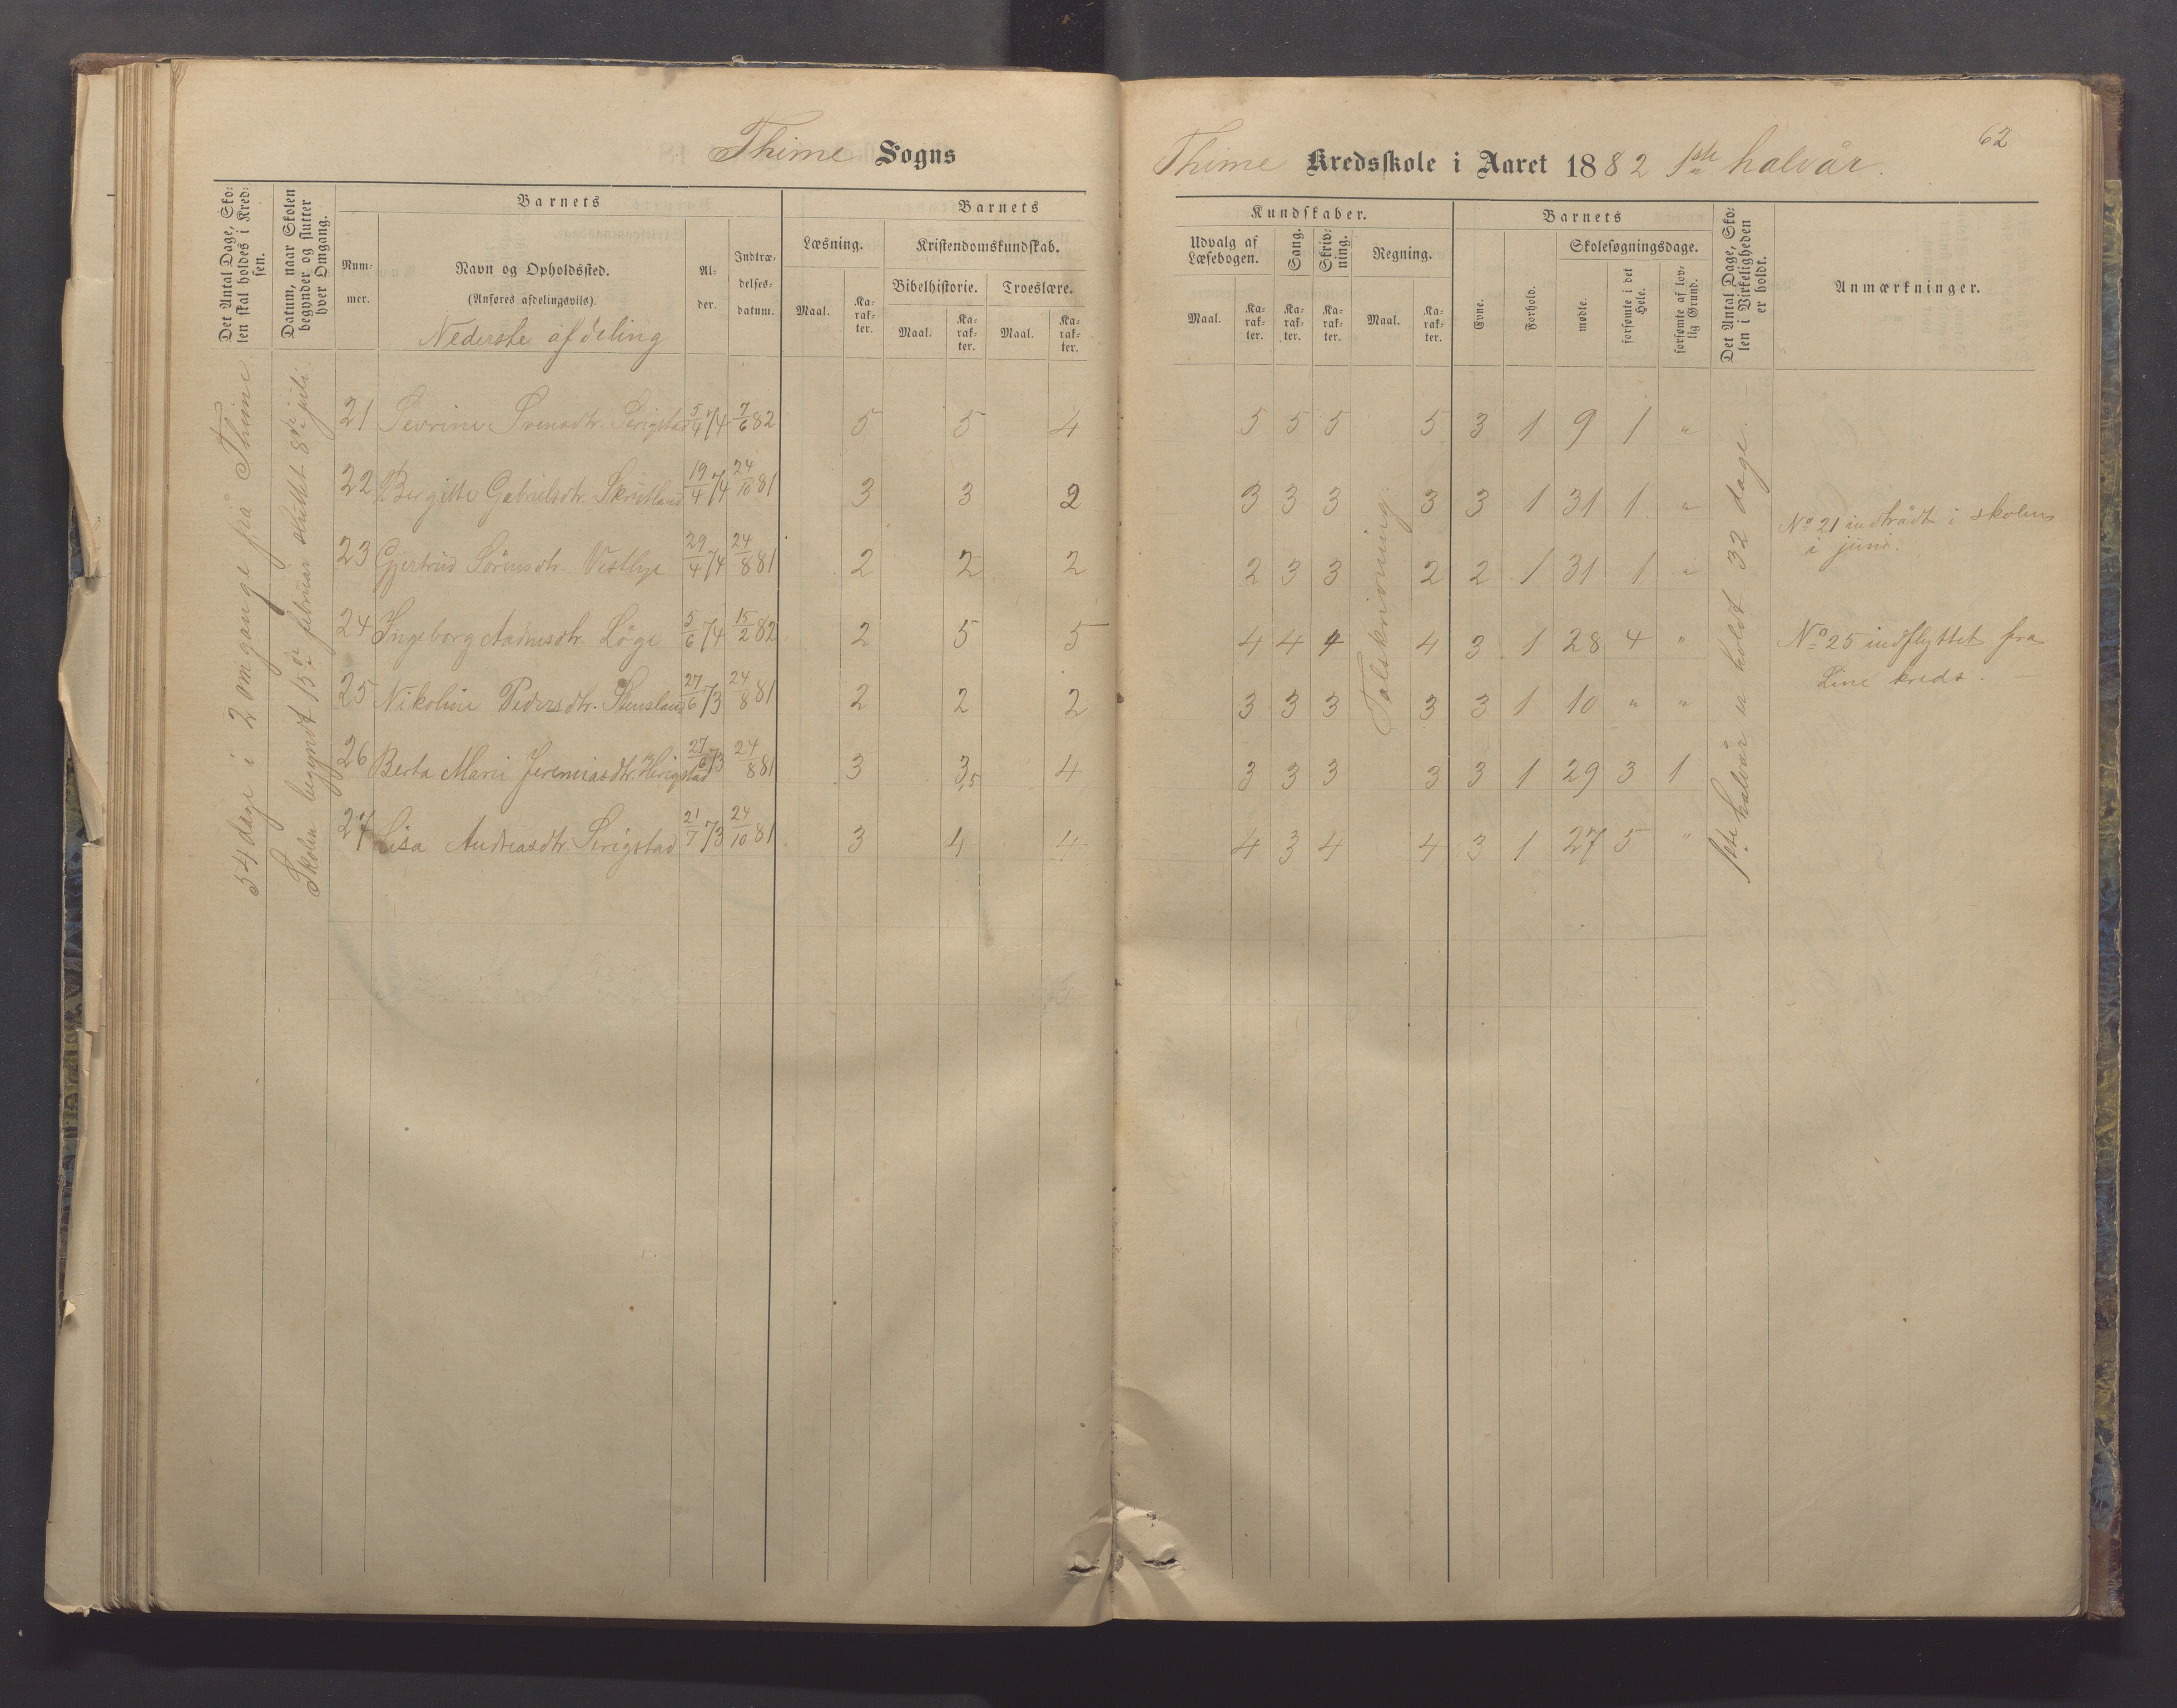 Thime Sogns
Thime Kredsskole i Aaret 1882 1ste halvår.
62
Det Antal Dage, Sko-
len skal holdes i Kred-
sen.
Datum, naar Skolen
begynder og slutter
hver Omgang.
Barnets
Num-
mer.
Navn og Opholdssted.
(Anføres afdelingsviis).
Nederste afdeling
Al-
der.
Indtræ-
delses-
datum.
Barnets
Læsning.
Maal.
Ka-
rak-
ter.
Kristendomskundskab.
Bibelhistorie.
Maal.
Ka-
rak-
ter.
Troeslære.
Maal.
Ka-
rak-
ter.
Kundskaber.
Udvalg af
Læsebogen.
Maal.
Ka-
rak-
ter.
Sang.
Ka-
rak-
ter.
Skriv-
ning.
Ka-
rak-
ter.
Regning.
Maal.
Ka-
rak-
ter.
Barnets
Evne.
Forhold.
Skolesøgningsdage.
mødte
forsømte i det
Hele.
forsømte af lov-
lig Grund.
Det Antal Dage, Sko-
len i Virkeligheden
er holdt.
Anmærkninger.
54 dage i 2 omgange på Thime
Skolen begyndt 15de februar sluttet 8de juli
21 Sevrine Svensdtr. Serigstad 5/4 74 7/6 82 5 5 4 5 5 5 5 3 1 9 1 "
22 Bergitte Gabrielsdtr. Skrutland 19/4 74 24/10 81 3 3 2 3 3 3 3 3 1 31 1 "
23 Gjertrud Sörensdtr. Vestlye 29/4 74 24/8 81 2 2 2 2 3 3 2 2 1 31 1 "
24 Ingeborg Aadnesdtr. Löge 5/6 74 15/2 82 2 5 5 4 4 4 4 3 1 28 4 "
25 Nikoline Pedersdtr. Stensland 27/6 73 24/8 81 2 2 2 3 3 3 3 3 1 10 " "
26 Berta Marie Jeremiasdtr. Herigstad 27/6 73 24/8 81 3 3,5 4 3 3 3 3 3 1 29 3 1
27 Lisa Andreasdtr. Serigstad 21/7 73 24/10 81 3 4 4 4 3 4 4 3 1 27 5 "
Talskrivning.
1ste halvår er holdt 32 dage.
No 21 indtrådt i skolen
i juni.
No 25 indflyttet fra
Line kreds.